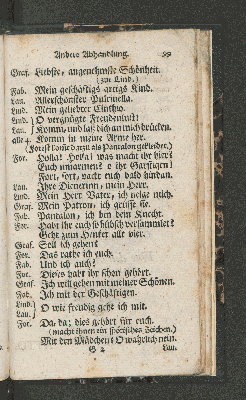 Andere Abhandlung. 99
Graf. Liebste, angenehmste Schönheit.
(zur Lind.)
Fab. Mein geschäftigs artigs Kind.
Lau. Allerschönster Pulcinella.
Lind. Mein geliebter Cinthio.
Lind. } O vergnügte Freudenlust!
Lau. } Komm, und laß dich an mich drücken.
alle 4. Komm in meine Arme her.
(Forest kommt darzu als Pantalon gekleidet.)
For. Holla! Holla! was macht ihr hier!
Euch umarmen? o ihr Garstigen!
Fort, fort, packt euch bald hindan.
Lau. Ihre Dienerinn, mein Herr.
Lind. Mein Herr Vater, ich neige mich.
Graf. Mein Patron, ich grüsse sie.
Fab. Pantalon, ich bin dein Knecht.
For. Habt ihr euch so hübsch versammlet?
Geht zum Henker alle vier.
Graf. Soll ich gehen?
For. Das rathe ich euch.
Fab. Und ich auch?
For. Dieses habt ihr schon gehört.
Graf. Ich will gehen mit meiner Schönen.
Fab. Ich mit der Geschäftigen.
Lind. } O wie freudig gehe ich mit.
Lau. }
For. Da, da; dies gehört für euch.
(macht ihnen ein spöttisches Zeichen.)
Mit den Mädchen? O wahrlich nein.
G 2 Lau.